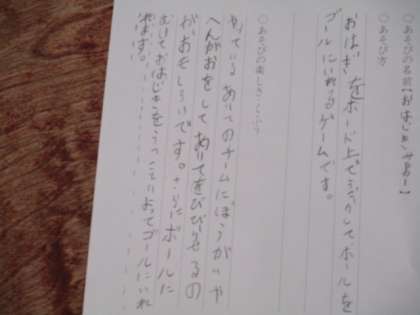 ○あそびの名前【おはじきサッカー】
○あそび方
おはじきをボード上でうごかしてボールを
ゴールにいれるゲームです。
○あそびの楽しさ・くふう
やっているあいてのチームにぼうがいや
へんがおをしてあいてをびびらせるの
がおもしろいです。さらにボールに
むけておはじきをうつことによってゴールにいれ
れます。